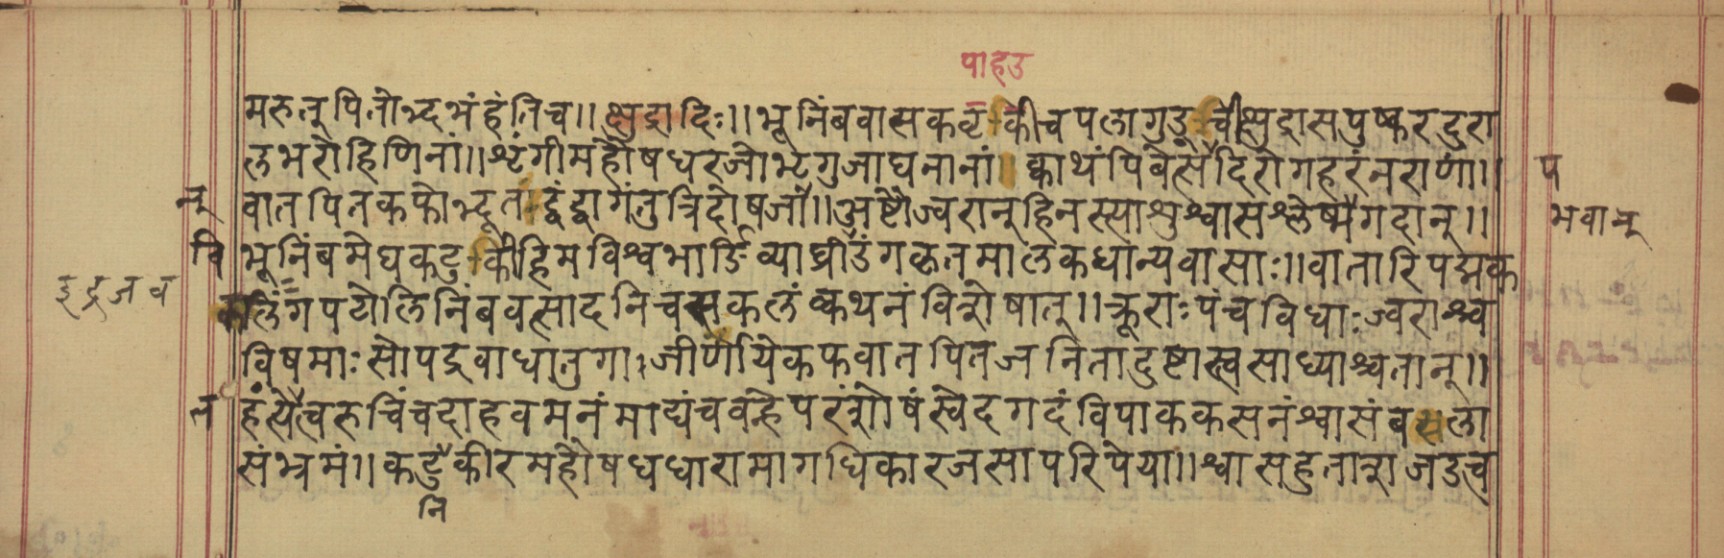 पाहउ
मरुत्पित्तोद्भभं हंति च ॥ क्षुद्रादिः ॥ भूनिंबवासककटुकी च पलागुडूचीक्षुद्रासपुष्करदुरा
लभरोहिणिनां ॥ शृंगीमहौषधरजोभृगुजाघनानां ॥ क्वाथं पिबेत्सदिरोगहरं नराणां ॥ प
न् वातपित्तकफोद्भूतद्वंद्वागंतुत्रिदोषजां ॥ अष्टौ ज्वरान् हिनस्त्याशु श्वासश्लेष्मगदान् ॥ भवान्
वि भूनिंबमेघकटुकीहिमविश्वभार्ङिव्याघ्रीउंगकृतमालकधान्यवासाः ॥ वातारिपद्मक
इद्रजव कलिंगपटोलिनिंबवत्सादनि च सकलं क्वथनं वि ॥ क्रूराः पंचविधाः ज्वराश्च
विषमाः सोपद्रवा धातुगा । जीर्णा ये कफवातपितजनिता दुष्टास्त्वसाध्याश्च तान् ॥
त हंत्ये रुचिं च दाहवमनं माद्यं च वन्हे परं शोषं स्वेदगदं विपाककसनं श्वासं बलला
संभ्रमं ॥ कटुकीरमहौषधधारामागधिकारजसा परिपेया ॥ श्वास
नि